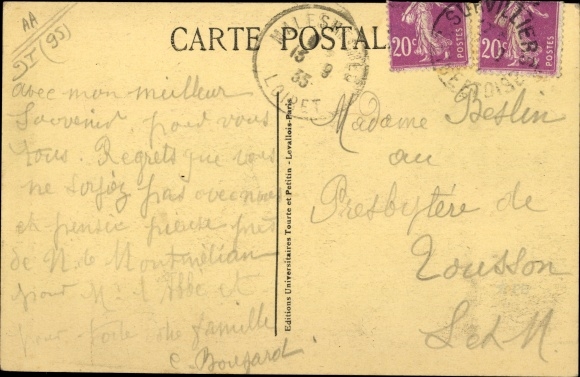 AA
ST (95)
CARTE POSTALE
MALESHERBES
13 9
35
LOIRET
20c POSTES
20c POSTES
SURVILLIERS
avec mon meilleur
Souvenir, pour vous
tous. Regrets que vous
ne soyiez pas avec nous
et pensée pieuse près
de N. de Montmélian
pour M. l'Abbé et
pour toute une famille
C. Bougard
Editions Universitaires Tourte et Petitin - Levallois-Paris
Madame Beslin
au
Presbytère de
Tousson
S et M